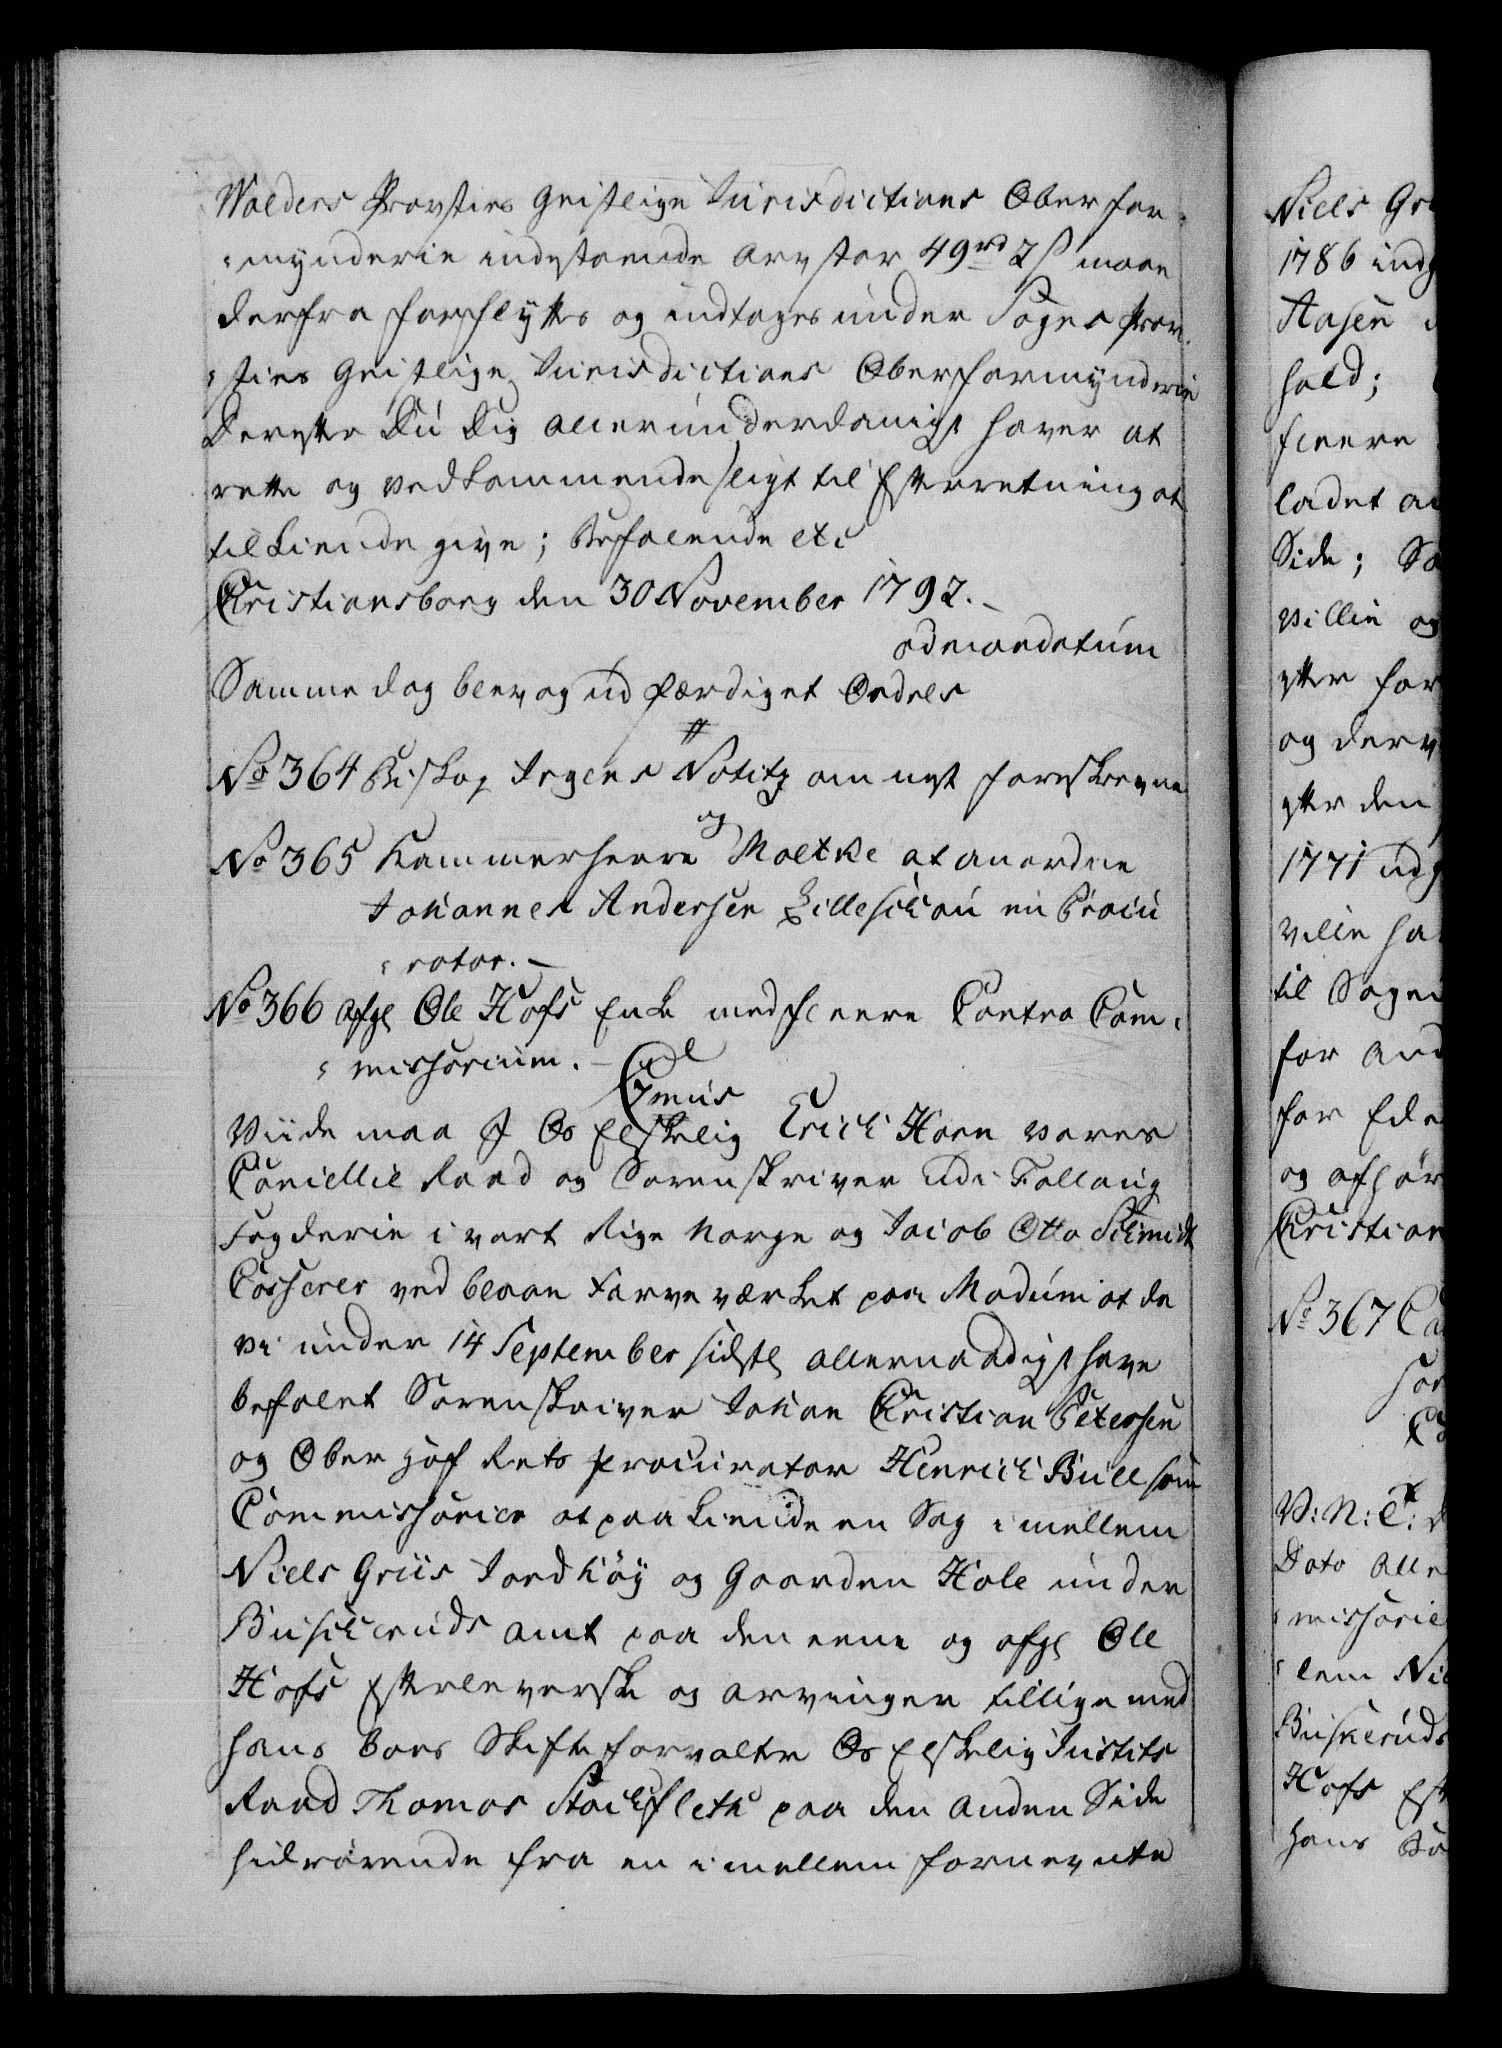 Walders Provsties Geistlige Jurisdictions Oberfor-
mynderie indestaaende Arv stor 49rd 2s maae
derfra forflyttes og indtages under Sogns Prov-
sties Geistlige Jurisdictions Oberformynderie
Derefter Du dig allerunderdanigst haver at
rette og vedkommende sligt til Efterretning at
tilkiende give; Befalende etc
Christiansborg den 30 November 1792.
ad mandatum
Samme dag blev og udfærdiget Ordres
#
No 364 Biskop Irgens Notitz om nyst foreskrevne
og
No 365 Kammerherre Moltke at anordne
Johannes Andersen Lilleschou en Procu
rator.
No 366 Afg Ole Hofs Enke med fleere Contra Com-
missorium. Cmus
Viide maa I Os Elskelig Erich Horn vores
Cancellie Raad og Sorenskriver udi Follaug
Fogderie i vort Rige Norge og Jacob Otto Schmidt
Casserer ved blaae Farve værket paa Modum at da
vi under 14 September sidstl allernaadigst have
befalet Sorenskriver Johan Christian Petersen
og Ober Hof Rets Procurator Henrich Bull som
Commissarier at paakiende en Sag imellem
Niels Griis Jordhøy og Gaarden Hole under
Buscheruds Amt paa den eene og afg Ole
Hofs Efterleverske og Arvinger tillige med
hans Boes Skifteforvalter Os Elskelig Justits
Raad Thomas Stochfleth paa den anden Side
hidrørende fra en imellem fornevnte
Niels Gri
1786 indg
Aasen
hold;
fleere
ladet an
Side; Sa
villie og
efter for
og derv
efter den
1771 udg
ville ha
til Sagen
for And
for Ede
og afhør
Christian
No 367 Ca
sor
Co
V: N: C:
Dato Alle
missarie
lem Nie
Buskeruds
Hofs Eft
hans Bo